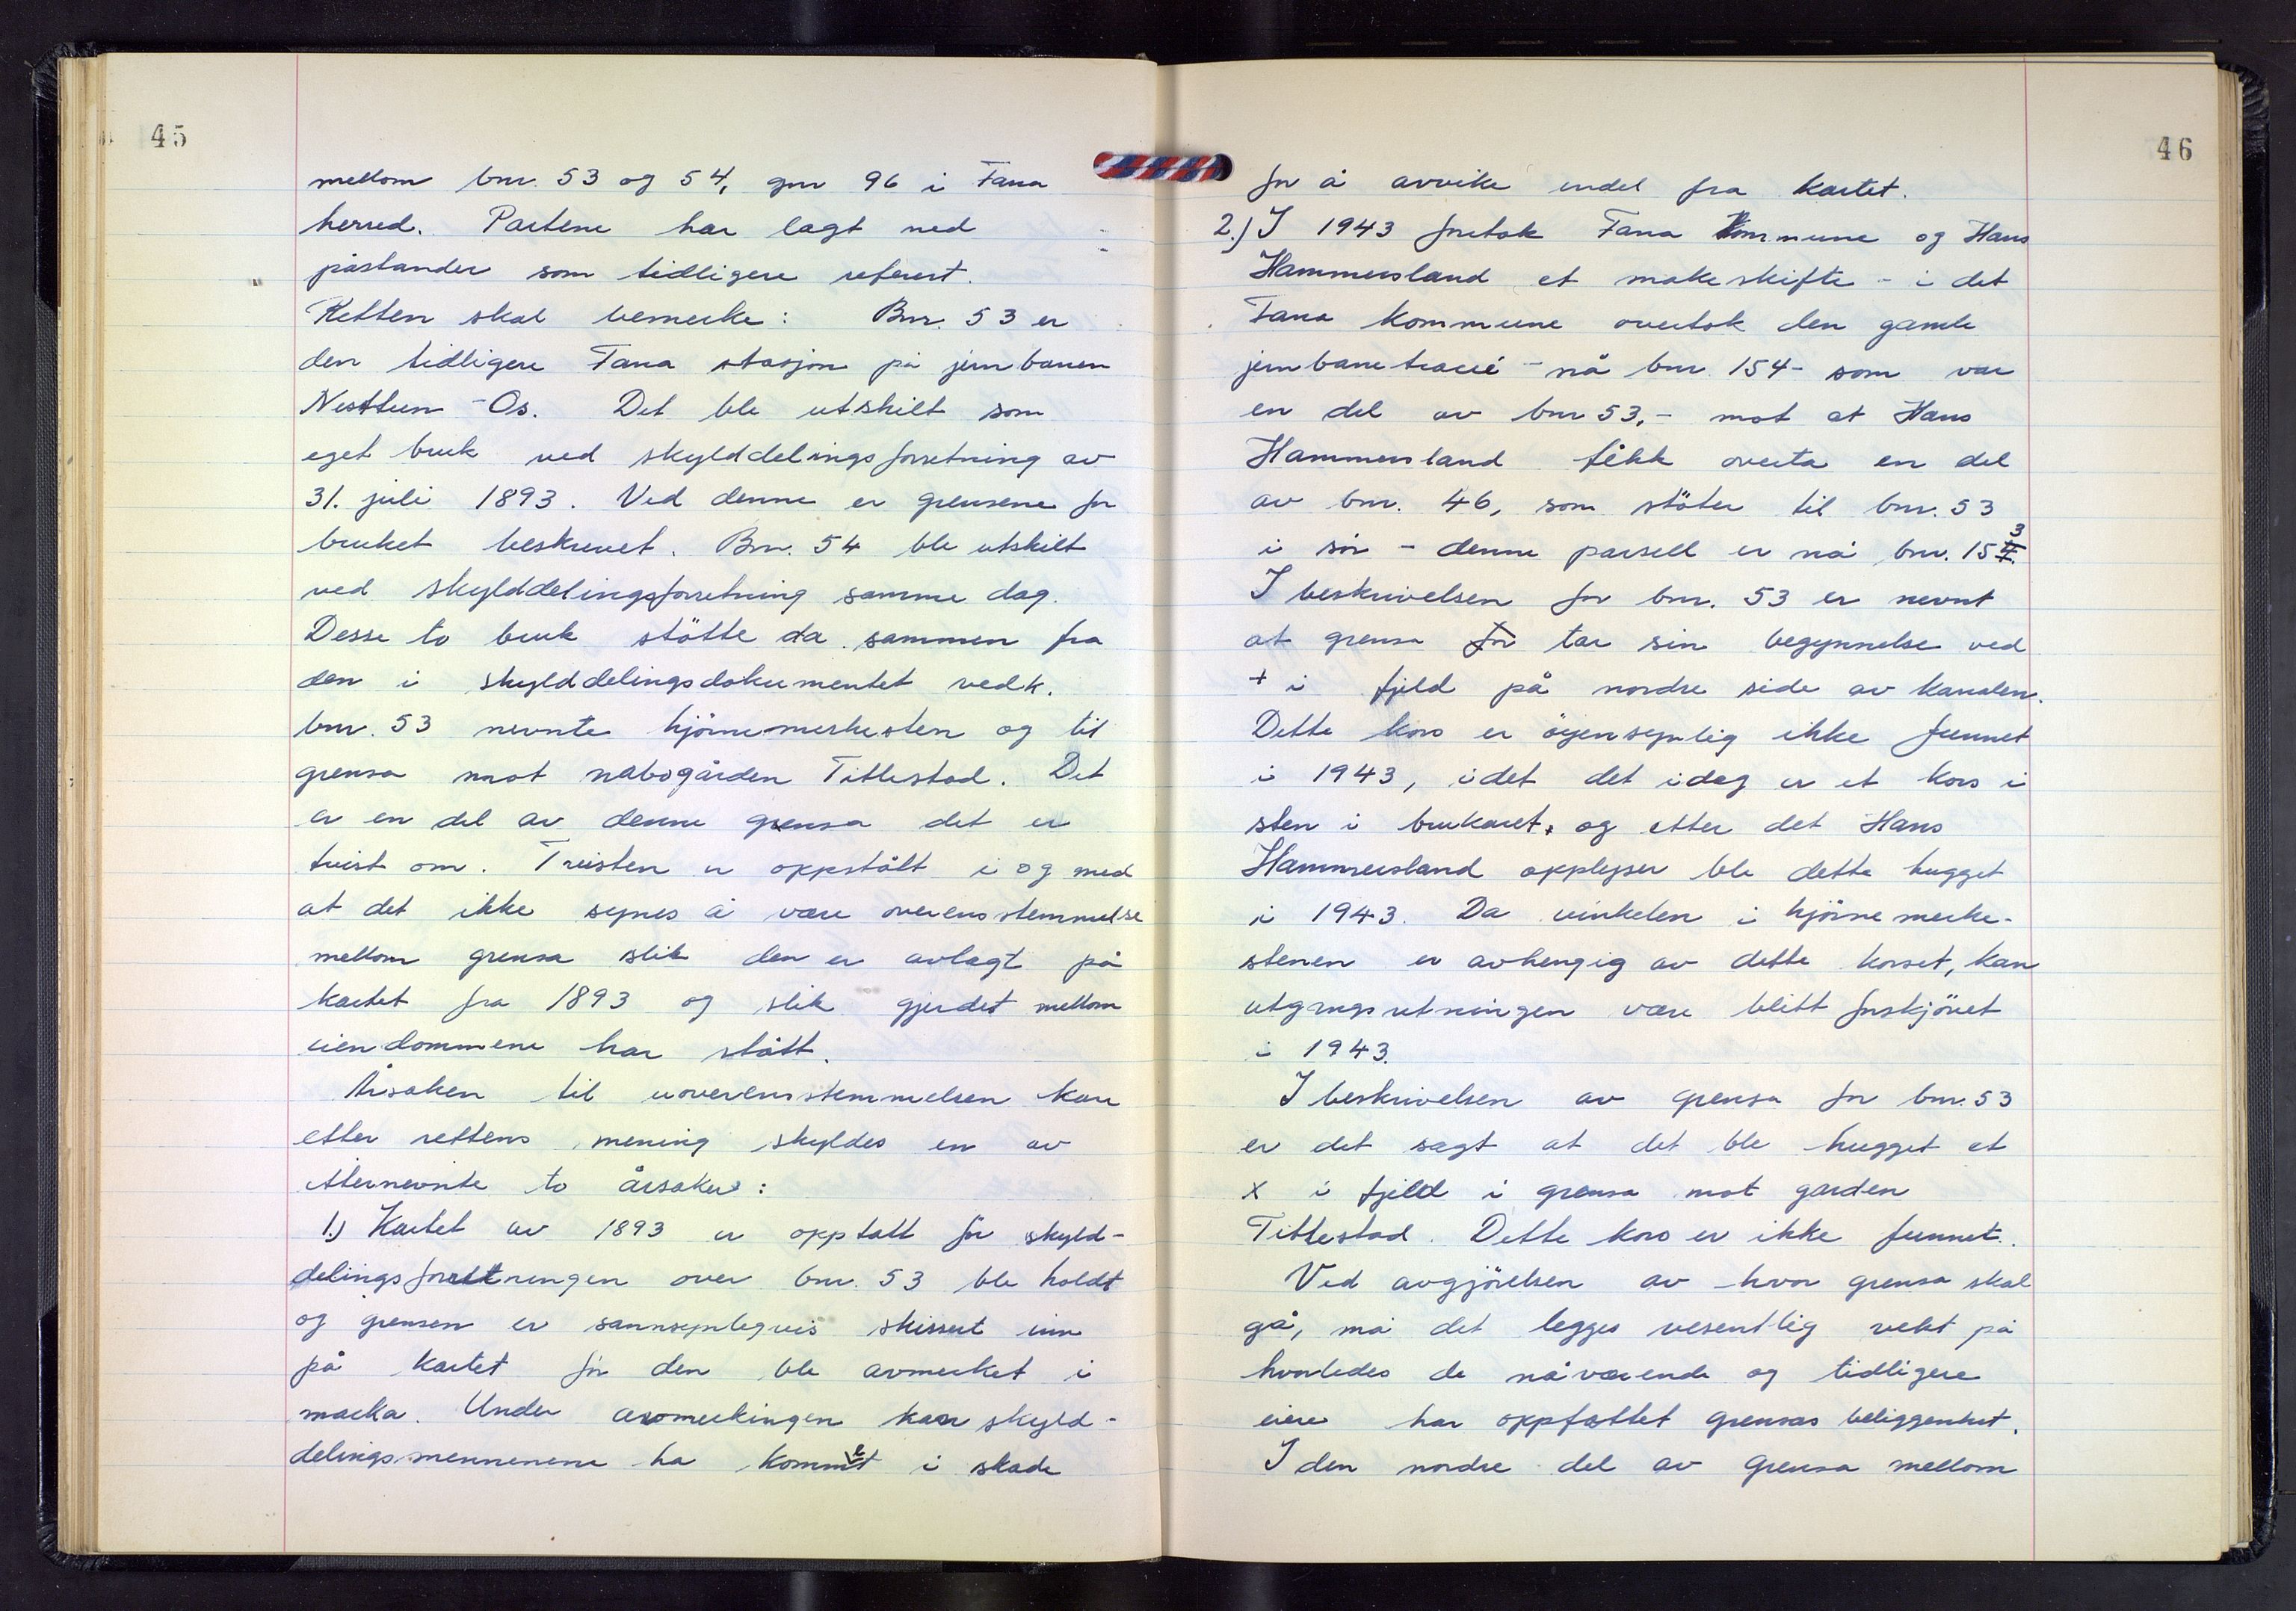 45
mellom bnr. 53 og 54, gnr 96 i Fana
herred. Partene har lagt ned
påstander som tidligere referert.
Retten skal bemerke: Bnr. 53 er
den tidligere Fana stasjon på jernbanen
Nesttun - Os. Det ble utskilt som
eget bruk ved skylddelingsforretning av
31. juli 1893. Ved denne er grensene for
bruket beskrevet. Bnr. 54 ble utskilt
ved skylddelingsforretning samme dag.
Desse to bruk stötte da sammen fra
den i skylddelingsdokumentet vedk.
bnr. 53 nevnte hjörnemerkesten og til
grensa mot nabogården Titlestad. Det
er en del av denne grensa det er
tvist om. Tvisten er oppstått i og med
at det ikke synes å være overensstemmelse
mellom grensa slik den er avlagt på
kartet fra 1893 og slik gjerdet mellom
eiendommene har stått.
Årsaken til uoverensstemmelsen kan
etter rettens mening skyldes en av
etternevnte to årsaker:
1.) Kartet av 1893 er opptatt för skyld-
delingsforretningen over bnr. 53 ble holdt
og grensen er sannsynligvis skissert inn
på kartet för den ble avmerket i
marka. Under avmerkingen kan skyld-
delingsmennenene ha kommet i skade
46
for å avvike endel fra kartet.
2.) I 1943 foretok Fana Kommune og Hans
Hammersland et makeskifte - i det
Fana kommune overtok den gamle
jernbanetracé - nå bnr 154 - som var
en del av bnr 53, - mot at Hans
Hammersland fikk overta en del
av bnr. 46, som stöter til bnr. 53
i sör - denne parsell er nå bnr. 153
I beskrivelsen for bnr. 53 er nevnt
at grensa for tar sin begynnelse ved
+ i fjeld på nordre side av kanalen.
Dette kors er öyensynlig ikke funnet
i 1943, idet det idag er et kors i
sten i brukaret, og etter det Hans
Hammersland opplyser ble dette hugget
i 1943. Da vinkelen i hjörnemerke-
stenen er avhengig av dette korset, kan
utgangsretningen være blitt forskjövet
i 1943.
I beskrivelsen av grensa for bnr. 53
er det sagt at det ble hugget et
x i fjeld i grensa mot garden
Titlestad. Dette kors er ikke funnet.
Ved avgjörelsen av hvor grensa skal
gå, må det legges vesentlig vekt på
hvorledes de nåværende og tidligere
eiere har oppfattet grensas beliggenhet.
I den nordre del av grensa mellom